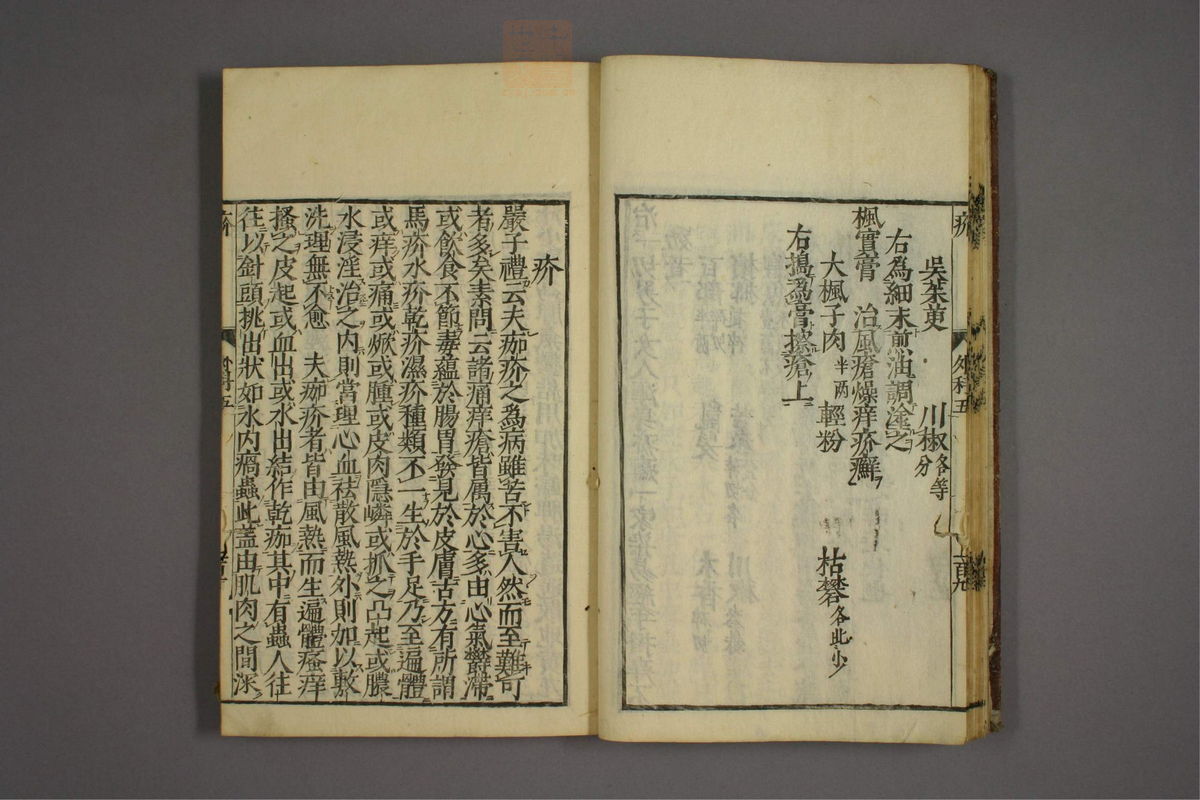 疥
外科五
百九
吳茱萸　川椒各等分
右為細末煎油調塗之
楓實膏　治風瘡燥痒疥癬
大楓子肉半两　輕粉　枯礬各此少
右搗為膏擦瘡上
疥
嚴子禮云夫痂疥之為病雖苦不害人然而至難可
者多矣素問云諸痛痒瘡皆属於心多由心氣欝滯
或飲食不節毒蘊於腸胃發見於皮膚古方有所謂
馬疥水疥乾疥濕疥種類不一生於手足乃至遍體
或痒或痛或焮或腫或皮肉隱嶙或抓之凸起或膿
水浸淫治之内則當理心血祛散風熱外則加以敷
洗理無不愈　夫痂疥者皆由風熱而生遍體瘙痒
搔之皮起或血出或水出結作乾痂其中有蟲人往
往以針頭挑出狀如水内瘑蟲此蓋由肌肉之間深
疥